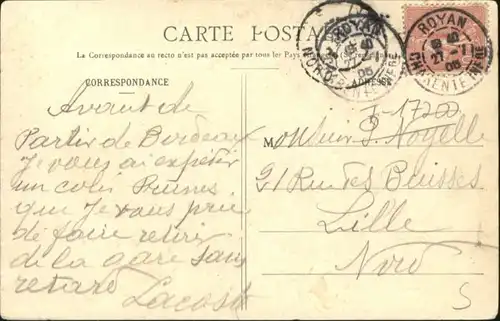 CARTE POSTALE
La Correspondance au recto n'est pas acceptée par tous les Pays
CORRESPONDANCE
ADRESSE
ROYAN
ROYAN
CHARENTE INFRE
Avant de
Partir de Bordeaux
Je vous ai expédier
un colis Prunes
que Je vous prie
de faire retirer
de la gare sans
retard
Lacoste
J-17200
Monsieur P. Noyelle
91 Rue des Buisses
Lille
Nord
S